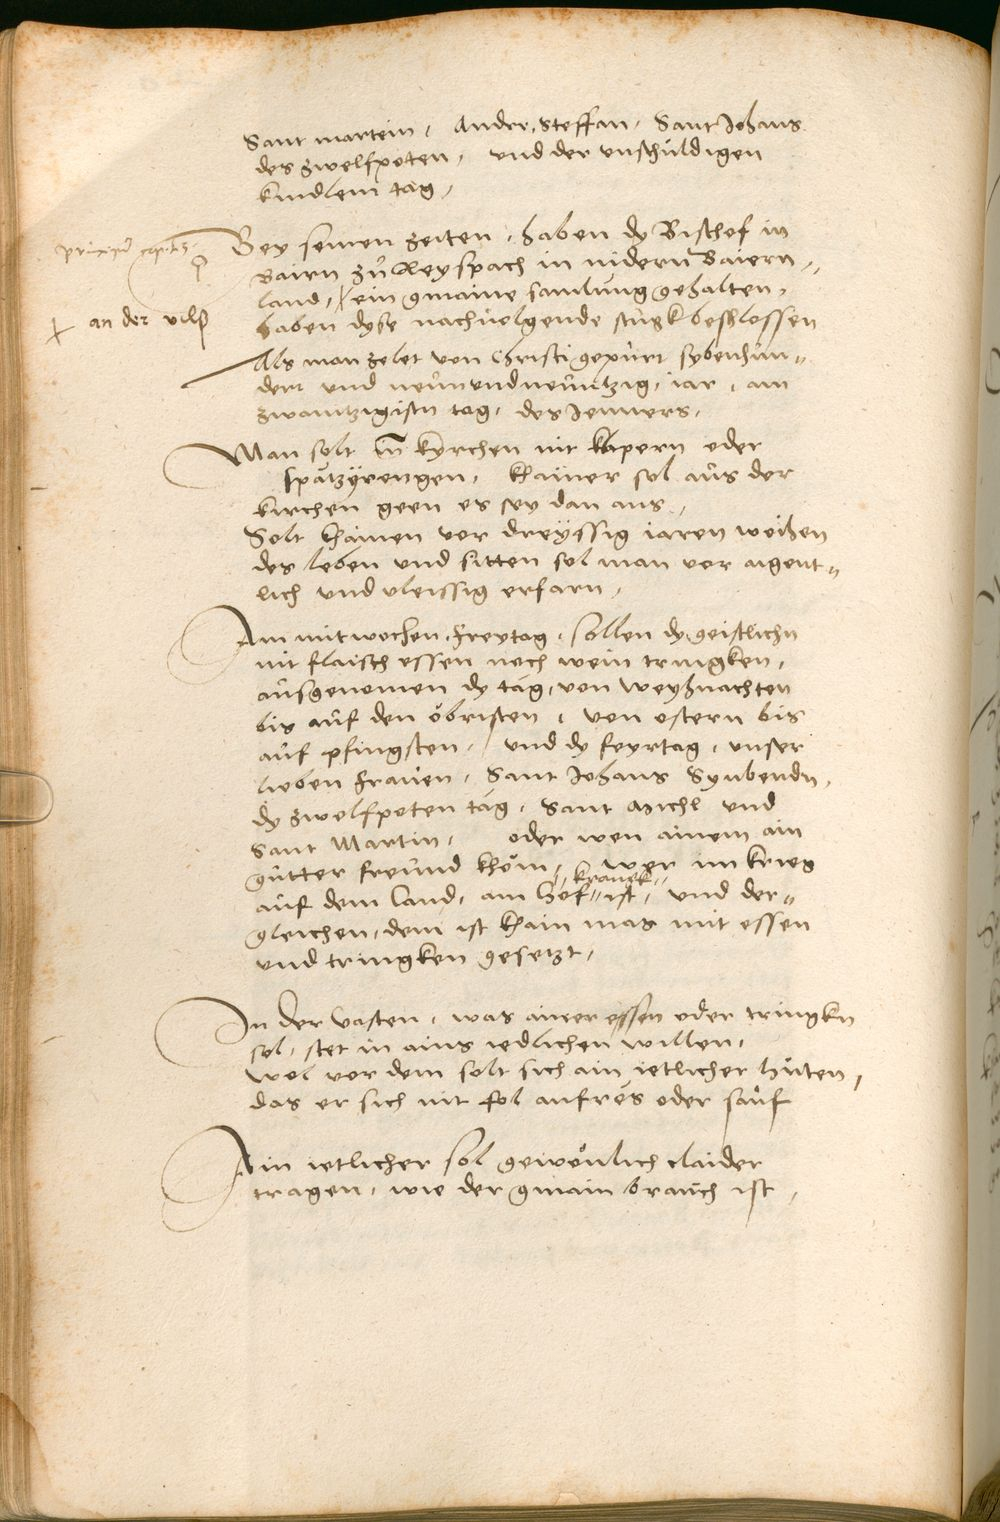 Sant martein, Andre, Steffan, Sant Johans
des zwelfpoten, und der unschuldigen
kindlein tag,
Bey seinen zeiten, haben dy Bischof in
Bairn zu Reyspach in nidern Baiern
land, ein gmaine samlung gehalten,
an der vilß
haben dyse nachvolgende stugk beschlossen
Als man zelet von Christi gepurt sybenhun=
dert und neunundneuntzig, iar, am
zwaintzigistn tag, des Jenners,
Man solt in kyrchen nit klapern oder
spatzyrengen, khainer sol aus der
kirchen geen es sey dan aus,
Solt khainen vor dreyssig iaren weihen
des leben und sitten sol man vor aigent=
lich und vleissig erfarn,
Am mitwochen, freytag, sollen dy geistlichn
nit flaisch essen noch wein tringken,
ausgenomen dy täg, von weyhnachten
bis auf den öbristen, von ostern bis
auf pfingsten, und dy feyrtag, unser
lieben frauen, Sant Johans Synbendn,
dy zwelfpoten täg, Sant Michl und
Sant Martin, oder wen ainem ain
gutter freund khöm, wer im krieg
auf dem land, am hof kranck ist, und der=
gleichen, dem ist khain mas mit essen
und tringken gesetzt,
In der vasten, was ainer essen oder tringkn
sol, stet in ains iedlichen willen,
Wol vor dem solt sich ain ietlicher hüten,
das er sich nit fol anfres oder sauf
Ain ietlicher sol gewönlich claider
tragen, wie der gmain brauch ist,